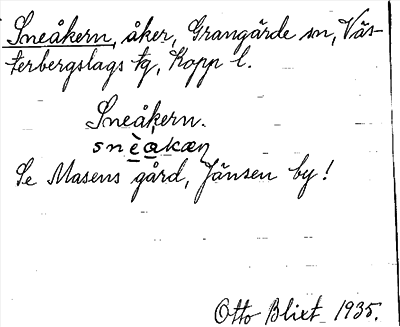 Sneåkern, åker, Grangärde sn, Väs-
terbergslags tg, Kopp l.
Sneåkern.
snèakæn
Se Masens gård, Jänsen by!
Otto Blixt 1935.